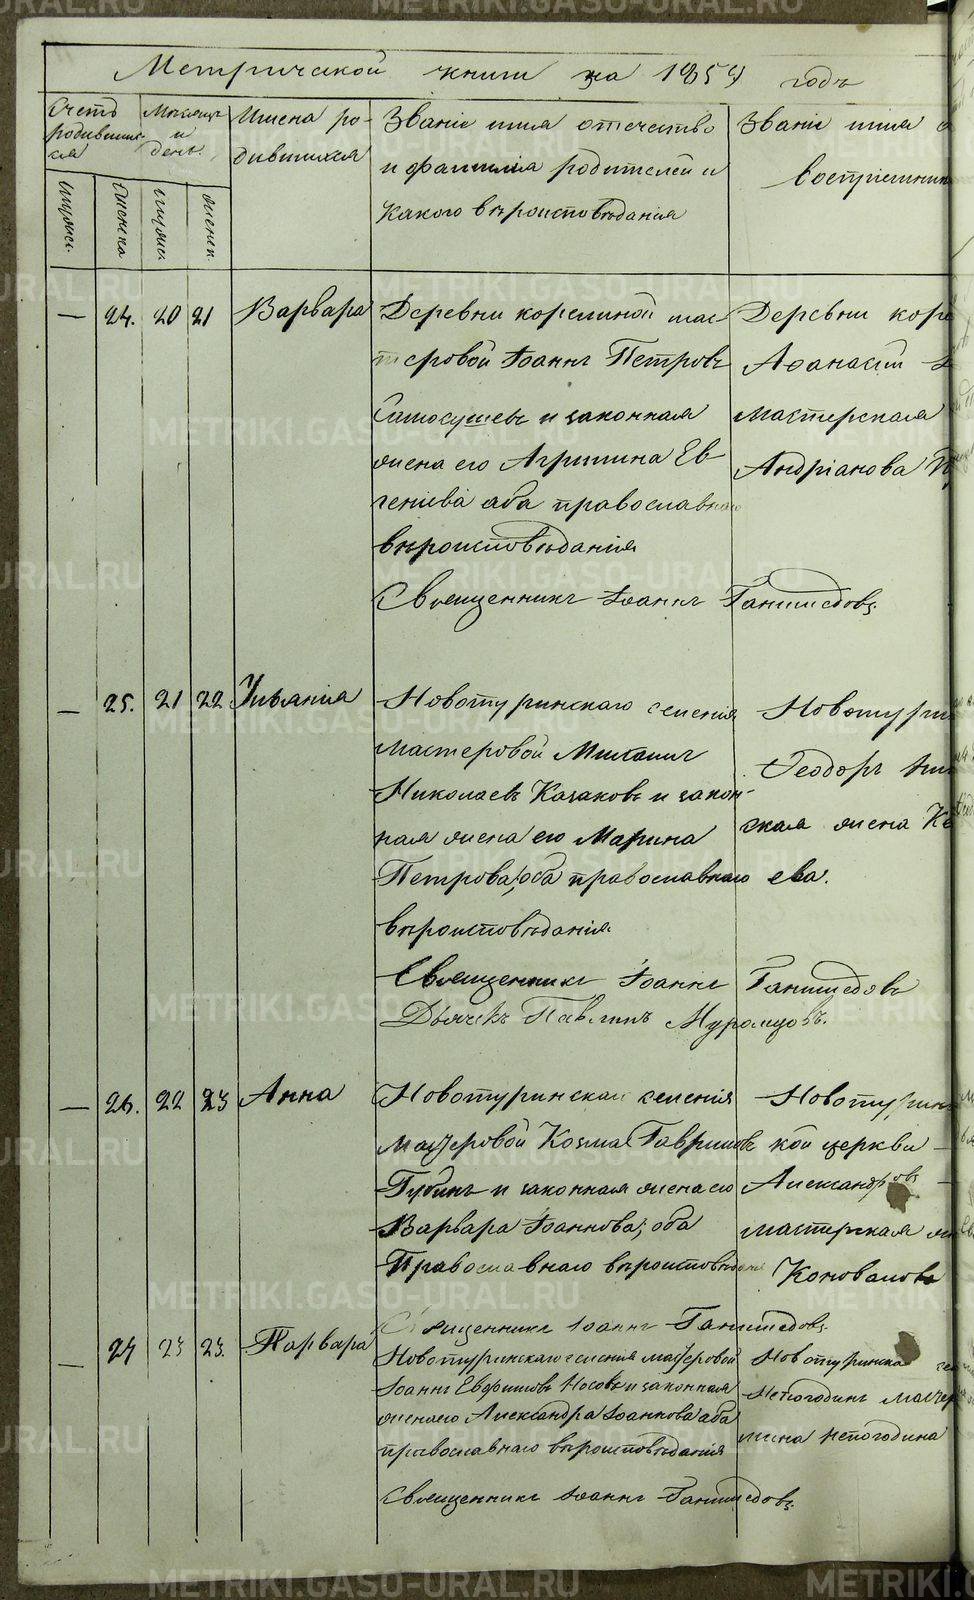 Метрической книги за 1859 годъ
Счетъ родившихся
Месяцъ и день.
Имена родившихся
Званіе имя отечество и фамилія родителей и какого вѣроисповѣданія
Званіе имя
воспріемник
мужес.
женска
мужес
женск.
— 24. 20 21 Варвара
Деревни корелиной мас-
теровой Іоаннъ Петровъ
Самосушевъ и законная
жена его Агрипина Ев-
геніева аба православнаго
вѣроисповѣданія
Священникъ Іоаннъ Ганимедовъ.
Деревни коре
Афанасій
мастерская
Андріанова
— 25. 21 22 Ульянія
Новотуринскаго селенія
мастеровой Михаилъ
Николаевъ Казаковъ и закон-
ная жена его Марина
Петрова, оба православнаго
вѣроисповѣданія.
Священникъ Іоаннъ Ганимедовъ
Дьячекъ Павлинъ Муромцовъ.
Новотури
Феодоръ
ская жена
ева.
— 26. 22 23 Анна
Новотуринскаи селенія
мастеровой Козма Гавриловъ
Губинъ и законная жена его
Варвара Іоаннова, оба
Православнаго вѣроисповѣданія
Священникъ Іоаннъ Ганимедовъ.
Новотурин
кой церкви —
Александровъ —
мастерская
Коновалова
— 27 23 23. Варвара
Новотуринскаго селенія мастеровой
Іоаннъ Евфимовъ Носовъ и законная
жена его Александра Іоаннова аба
православнаго вѣроисповѣданія
Священникъ Іоаннъ Ганимедовъ.
Новотуринска
Непогодинъ мастер
жена Непогодина
METRIKI.GASO-URAL.RU